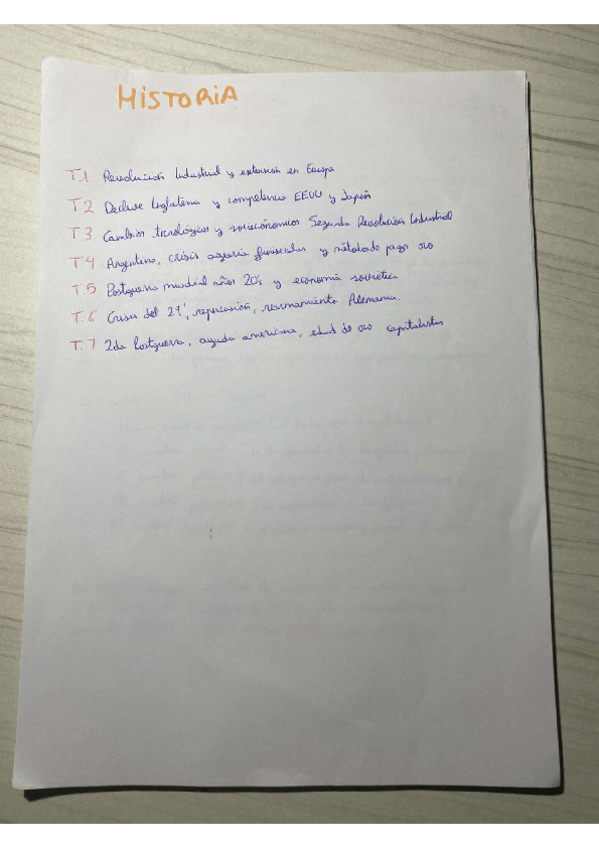 HiSTORiA
T.1 Revolución Industrial y extensión en Europa
T.2 Declive Inglaterra y competencia EEUU y Japón
T.3 Cambios tecnológicos y socieconómicos Segunda Revolución Industrial
T.4 Argentina, crisis agraria finisecular y método de pago oro
T.5 Postguerra mundial años 20's y economía soviética
T.6 Crisis del 29', repercusión, rearmamiento Alemania.
T.7 2da Postguerra, ayuda americana, edad de oro capitalista